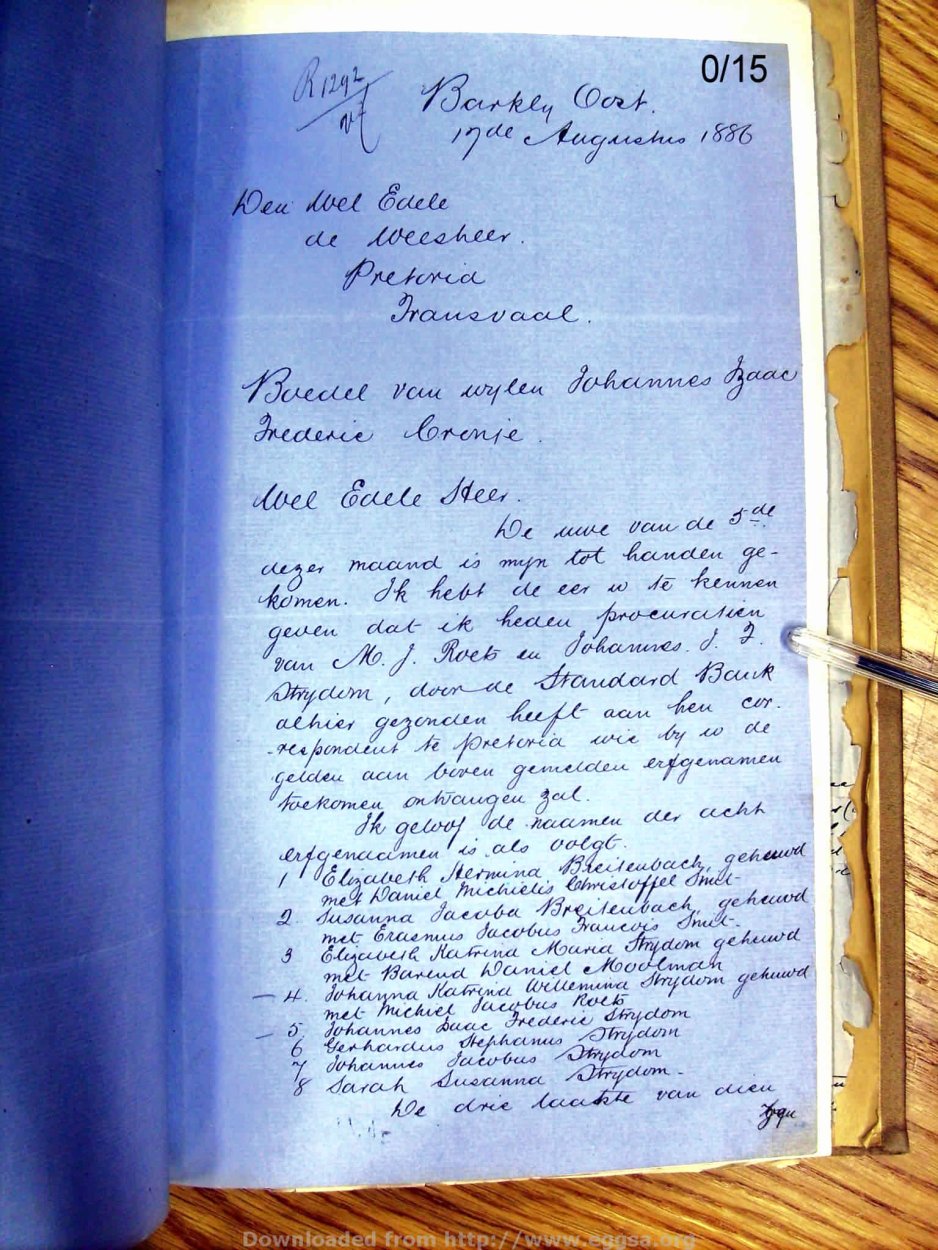 0/15
R1292
Barkly Oost.
17de Augustus 1886
Den Wel Edele
de Weesheer.
Pretoria
Transvaal.
Boedel van wylen Johannes Izaac
Frederic Cronje.
Wel Edele Heer.
De uwe van de 5de
dezer maand is myn tot handen ge-
komen. Ik hebt de eer u te kennen
geven dat ik heden procuratien
van M. J. Roets en Johannes. J. F.
Strydom, door de Standard Bank
alhier gezonden heeft aan hen cor-
-respondent te Pretoria wie by u de
gelden aan boven gemelden erfgenamen
toekomen ontvangen zal.
Ik geloof de naamen der acht
erfgenaamen is als volgt.
1 Elizabeth Hermina Breitenbach, gehuwd
met Daniel Michielis Christoffel Smit-
2. Susanna Jacoba Breitenbach, gehuwd
met Erasmus Jacobus Francois Smit-
3 Elizabeth Katrina Maria Strydom gehuwd
met Barend Daniel Moolman
- 4. Johanna Katrina Willemina Strydom gehuwd
met Michiel Jacobus Roets
- 5. Johannes Isaac Frederic Strydom
6 Gerhardus Stephanus Strydom
7 Johannes Jacobus Strydom
8 Sarah Susanna Strydom-
De drie laatste van dien
Zyn
Downloaded from http://www.eggsa.org